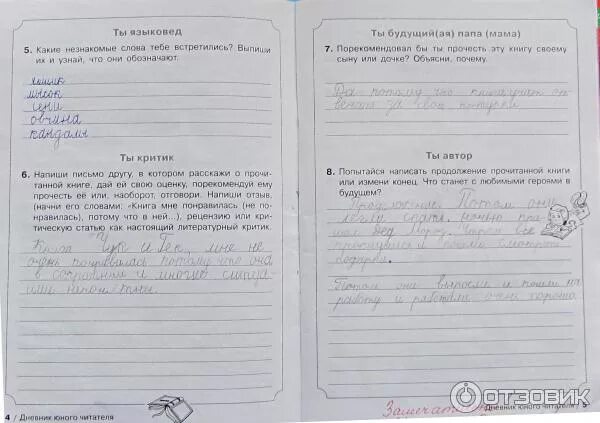 Ты языковед
5. Какие незнакомые слова тебе встретились? Выпиши
их и узнай, что они обозначают.
ямщик
мысок
сени
овчина
кандалы
Ты критик
6. Напиши письмо другу, в котором расскажи о прочи-
танной книге, дай ей свою оценку, порекомендуй ему
прочесть её или, наоборот, отговори. Напиши отзыв,
начни его словами: «Книга мне понравилась (не по-
нравилась), потому что в ней...), рецензию или кри-
тическую статью как настоящий литературный критик.
Книга "Чук и Гек" мне не
очень понравилась потому что она
в сокращении и многие
или непонятны.
4 / Дневник юного читателя
Ты будущий(ая) папа (мама)
7. Порекомендовал бы ты прочесть эту книгу своему
сыну или дочке? Объясни, почему.
Да потому что книга учит от
вечать за свои поступки
Ты автор
8. Попытайся написать продолжение прочитанной книги
или измени конец. Что станет с любимыми героями в
будущем?
Продолжение. Потом они
легли спать, ночью при
шёл Дед Мороз. Утром все
проснулись и пошли смотреть
подарки.
Потом они выросли и пошли на
работу и работали очень хорошо.
Дневник юного читателя / 5
ОТЗОВИК